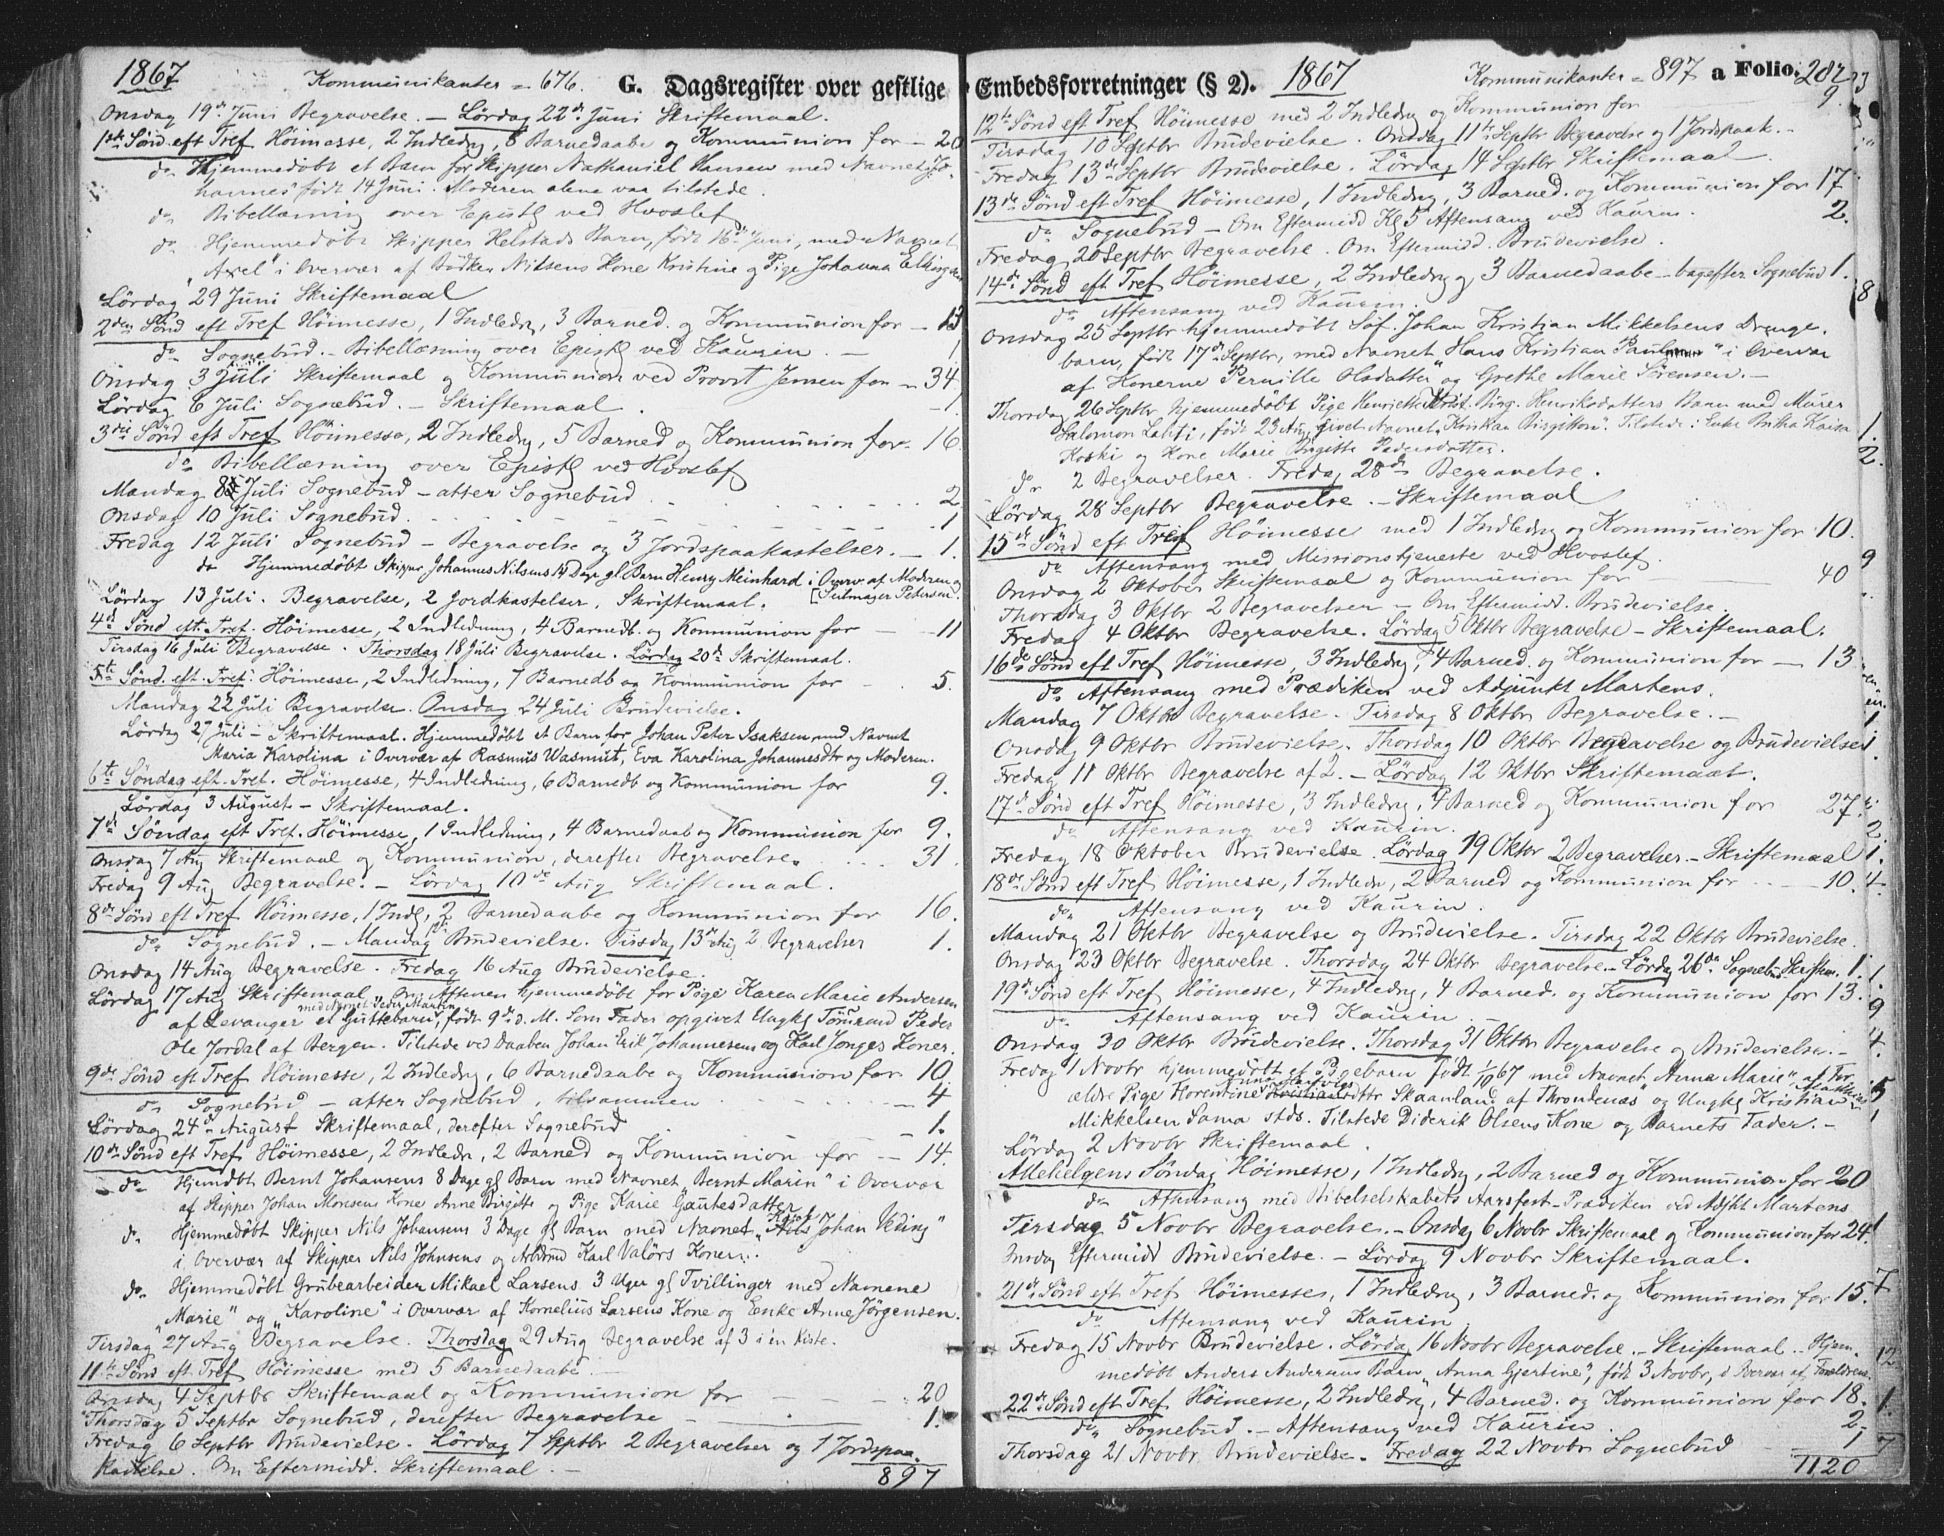 1867 Kommunikanter = 676. G. Dagsregister over gestlige
Onsdag 19de Juni Begravelse. - Lördag 22de Juni Skriftemaal.
1ste Sönd eft Tref Höimesse, 2 Indledng, 8 Barnedaabe og Kommunion for - 20
do Hjemmedöbt et Barn for Skipper Nathaniel Hansen med Navnet "Jo-
hannes" födt 14 Juni. Moderen alene var tilstede.
do Bibellæsning over Epistl ved Hvoslef
do Hjemmedöbt Skipper Helstads Barn, födt 16de Juni, med Navnet
"Axel" i Overvær af Bödker Nilsens Kone Kristine og Pige Johanna
Lördag 29 Juni Skriftemaal
2den Sönd eft Tref Höimesse, 1 Indledng, 3 Barned. og Kommunion for - 13
do Sognebud. - Bibellæsning over Epistl ved Kaurin. - 1
Onsdag 3 Juli Skriftemaal og Kommunion ved Provst Jensen for - 34
Lördag 6 Juli Sognebud. - Skriftemaal. - 1
3die Sönd eft Tref Höimesse, 2 Indledng, 5 Barned og Kommunion for - 16
do Bibellæsning over Epistl ved Hvoslef
Mandag 8 Juli Sognebud - atter Sognebud 2
Onsdag 10 Juli Sognebud. 1
Fredag 12 Juli Sognebud - Begravelse og 3 Jordspaakastelser. - 1.
do Hjemmedöbt Skipper Johannes Nilsens 14 Dage gl Barn Henry Meinhard i Overv af Moderen og
Lördag 13 Juli. Begravelse, 2 Jordkastelser, Skriftemaal. [Seilmager Petersen.
4de Sönd eft. Tref. Höimesse, 2 Indledning, 4 Barnedb. og Kommunion for - 11
Tirsdag 16 Juli Begravelse. Thorsdag 18 Juli Begravelse. Lördag 20de Skriftemaal.
5te Sönd. eft. Tref. Höimesse, 2 Indledning, 7 Barnedb og Kommunion for 5.
Mandag 22 Juli Begravelse. Onsdag 24 Juli Brudevielse.
Lördag 27 Juli - Skriftemaal. Hjemmedöbt et Barn for Johan Peter Isaksen med Navnet
Maria Karolina i Overvær af Rasmus Wasmut, Eva Karolina Johannesdtr og Moderen.
6te Söndag eft. Tref. Höimesse, 4 Indledning, 6 Barnedb og Kommunion for 9.
Lördag 3 August - Skriftemaal.
7de Söndag eft Tref. Höimesse, 1 Indledning, 4 Barnedaab og Kommunion for 9.
Onsdag 7 Aug Skriftemaal og Kommunion, derefter Begravelse. 31.
Fredag 9 Aug Begravelse. - Lördag 10de Aug Skriftemaal.
8de Sönd eft Tref Höimesse, 1 Indl, 2 Barnedaabe og Kommunion for 16.
do Sognebud. - Mandag 12 Brudevielse. Tirsdag 13de Aug 2 Begravelser 1.
Onsdag 14 Aug Begravelse. Fredag 16 Aug Brudevielse.
Lördag 17 Aug Skriftemaal. Om Aftenen hjemmedöbt for Pige Karen Marie Andersen
af Levanger et Guttebarn, födt 9de d. M. Som Fader opgivet Ungkl Tömrmd Peder
Ole Jordal af Bergen. Tilstede ved Daaben Johan Erik Johannesens og Karl Jonges Koner.
9de Sönd eft Tref Höimesse, 2 Indledng, 6 Barnedaabe og Kommunion for 10
do Sognebud - atter Sognebud, tilsammen - 4
Lördag 24de August Skriftemaal, derefter Sognebud - 1.
10de Sönd eft Tref Höimesse, 2 Indledn, 2 Barned og Kommunion for - 14.
do Hjemdbt Bernt Johansens 8 Dage gl Barn med Navnet "Bernt Marin" i Overvær
af Skipper Johan Monsens Kone Anne Birgitte og Pige Karie Gautesdatter
do Hjemmedöbt Skipper Nils Johansens 3 Dage gl Barn med Navnet "Nils Johan Veding"
i Overvær af Skipper Nils Johnsens og Arbdmd Karl Valörs Koner.
do Hjemmedöbt Grubearbeider Mikael Larsens 3 Uger gl Tvillinger med Navnene
"Marie" og "Karoline" i Overvær af Kornelius Larsens Kone og Enke Anne Jörgensen.
Tirsdag 27 Aug Begravelse. Thorsdag 29 Aug Begravelse af 3 i én Kiste.
11te Sönd eft Tref Höimesse med 5 Barnedaabe.
Onsdag 4 Septbr Skriftemaal og Kommunion for - - 20
Thorsdag 5 Septbr Sognebud, derefter Begravelse - 1.
Fredag 6 Septbr Brudevielse. Lördag 7 Septbr 2 Begravelser og 1 Jordspaa-
kastelse. Om Eftermidd. Skriftemaal. - 897
Embedsforretninger (§ 2). 1867 Kommunikanter = 897 a Folio. 282
12te Sönd eft Tref Höimesse med 2 Indledng og Kommunion for 9.
Tirsdag 10 Septbr Brudevielse. Onsdag 11te Septbr Begravelse og 1 Jordspaak.-
Fredag 13de Septbr Brudevielse. Lördag 14 Septbr Skriftemaal.
13de Sönd eft Tref Höimesse, 1 Indledng, 3 Barned. og Kommunion for 17
do Sognebud - Om Eftermidd Kl 5 Aftensang ved Kaurin. 2.
Fredag 20 Septbr Begravelse. Om Eftermidd. Brudevielse.
14de Sönd eft Tref Höimesse, 2 Indledng, 3 Barnedaabe - bagefter Sognebud 1.
do Aftensang ved Kaurin.
Onsdag 25 Septbr hjemmedöbt Söf. Johan Kristian Mikkelsens Drenge-
barn, födt 17de Septbr, med Navnet "Hans Kristian Paul" i Overvær
af Konerne Pernille Olsdatter og Grethe Marie Sörensen. -
Thorsdag 26 Septbr hjemmedöbt Pige Henriette Krist. Birg. Henriksdatters Barn med Murer
Salomon Lahti, födt 23 Aug, givet Navnet Kristian Birgitton. Tilstede: Enke Brita Kaisa
Koski og Kone Marie Brigitte Pedersdatter.
do 2 Begravelser. Fredag 28de Begravelse.
Lördag 28 Septbr Begravelse. - Skriftemaal
15de Sönd eft Tref Höimesse med 1 Indledng og Kommunion for 10.
do Aftensang med Missionstjeneste ved Hvoslef.
Onsdag 2 Oktober Skriftemaal og Kommunion for 40
Thorsdag 3 Oktbr 2 Begravelser - Om Eftermidd. Brudevielse.
Fredag 4 Oktbr Begravelse. Lördag 5 Oktbr Begravelse - Skriftemaal.
16de Sönd eft Tref Höimesse, 3 Indledng, 4 Barned. og Kommunion for - 13
do Aftensang med Prædiken ved Adjunkt Martens.
Mandag 7 Oktbr Begravelse. Tirsdag 8 Oktbr Begravelse. -
Onsdag 9 Oktbr Brudevielse. Thorsdag 10 Oktbr Begravelse og Brudevielse
Fredag 11 Oktbr Begravelse af 2. - Lördag 12 Oktbr Skriftemaal.
17de Sönd eft Tref Höimesse, 3 Indledng, 4 Barned og Kommunion for 27.
do Aftensang ved Kaurin.
Fredag 18 Oktober Brudevielse. Lördag 19 Oktbr 2 Begravelser - Skriftemaal
18de Sönd eft Tref Höimesse, 1 Indledn, 2 Barned og Kommunion for - 10.
do Aftensang ved Kaurin.
Mandag 21 Oktbr Begravelse og Brudevielse. Tirsdag 22 Oktbr Brudevielse.
Onsdag 23 Oktbr Begravelse. Thorsdag 24 Oktbr Begravelse. - Lördg 26de Sognebud, Skriftem. 1.
19de Sönd eft Tref Höimesse, 4 Indledng, 4 Barned. og Kommunion for 13.
do Aftensang ved Kaurin.
Onsdag 30 Oktbr Brudevielse. Thorsdag 31 Oktbr Begravelse og Brudevielse. -
Fredag 1 Novbr hjemmedöbt et Pigebarn födt 1/10 67 med Navnet "Anna Marie", af For-
ældre Pige Florentine Skaanland af Throndenæs og Ungkl Kristian
Mikkelsen Sama stds. Tilstede Diderik Olsens Kone og Barnets Fader. -
Lördag 2 Novbr Skriftemaal.
Allehelgens Söndag Höimesse, 1 Indledng, 2 Barned og Kommunion for 20
do Aftensang med Bibelselskabets Aarsfest - Prædiken ved Adjkt Martens
Tirsdag 5 Novbr Begravelse. - Onsdag 6 Novbr Skriftemaal og Kommunion for 24.
Onsdag Eftermidd Brudevielse. - Lördag 9 Novbr Skriftemaal.
21de Sönd eft Tref Höimesse, 1 Indledng, 3 Barned. og Kommunion for 15.
do Aftensang ved Kaurin
Fredag 15 Novbr Brudevielse. Lördag 16 Novbr Begravelse. - Skriftemaal. - Hjem-
medöbt Anders Andersens Barn "Anna Gjertine", födt 3 Novbr, i Overvær af Forældrene.
22de Sönd eft Tref Höimesse, 2 Indledng, 4 Barned. og Kommunion for 18.
do Sognebud. - Aftensang ved Kaurin. 2
Thorsdag 21 Novbr Brudevielse. Fredag 22 Novbr Sognebud 1
1120